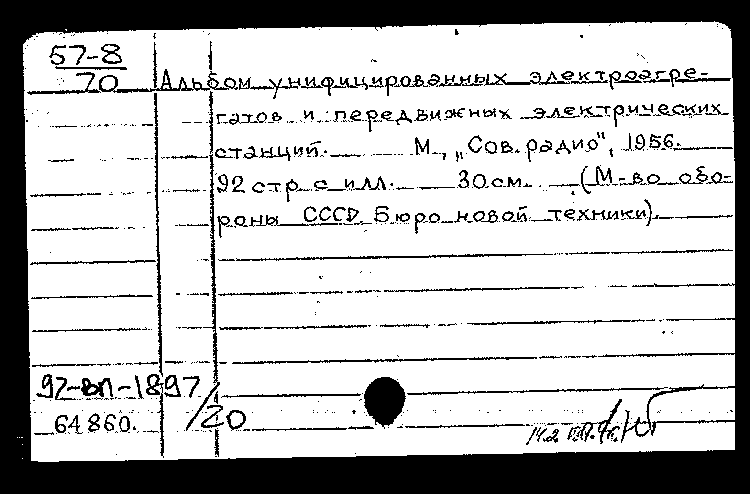 57-8
70
Альбом унифицированных электроагре-
гатов и передвижных электрических
станций. М., „Сов. радио", 1956.
92 стр с илл. 30 см. (М-во обо-
роны СССР Бюро новой техники).
92-вп-1897
/20
64860.